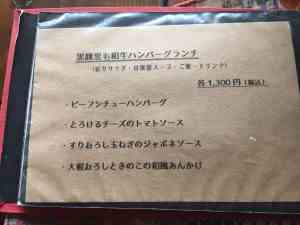 黒麹黒毛和牛ハンバーグランチ
(彩りサラダ・日替るスープ・ご飯・ドリンク)
各1,300円(税込)
・ビーフシチューハンバーグ
・とろけるチーズのトマトソース
・すりおろし玉ねぎのジャポネソース
・大根おろしときのこの和風あんかけ